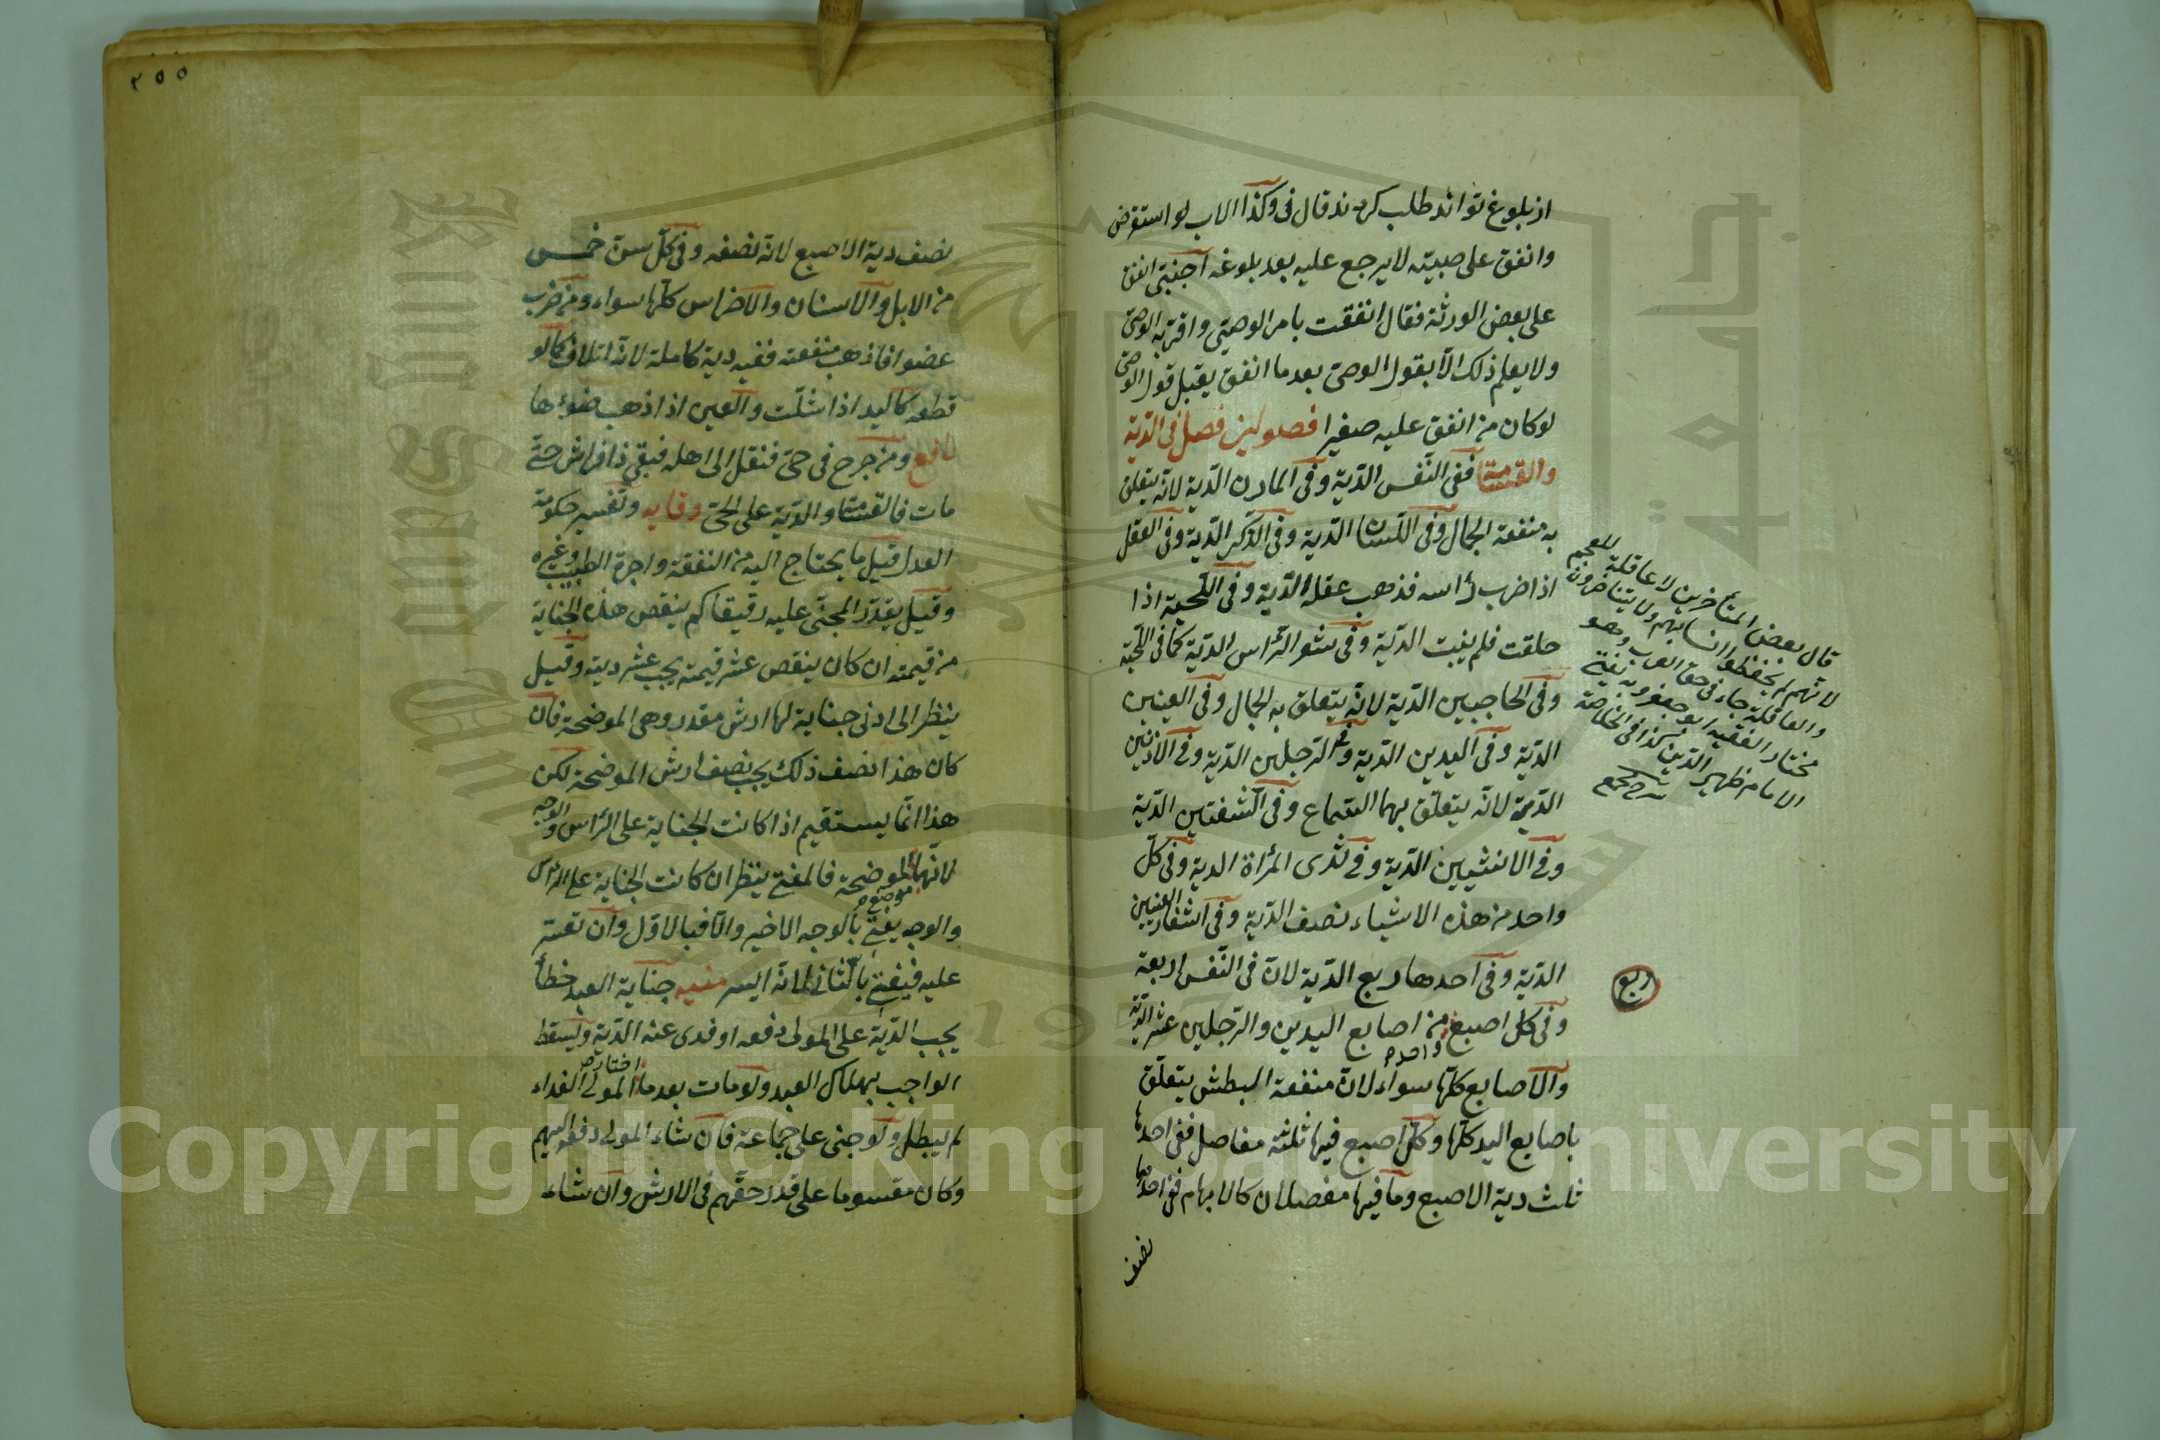 از بلوغ تواند طلب كردند قال فى وكذا الاب لو استقرض
وانفق على صبيته لا يرجع عليه بعد بلوغه اجنبى انفق
على بعض الورثة فقال انفقت بامر الوصى واقر به الوصى
ولا يعلم ذلك الا بقول الوصى بعد ما انفق يقبل قول الوصى
لو كان من انفق عليه صغيرا فصولين فصل فى الدية
والقسامة ففى النفس الدية وفى المارن الدية لانه يتعلق
به منفعة الجمال وفى اللسان الدية وفى الذكر الدية وفى العقل
اذا ضرب رأسه فذهب عقله الدية وفى اللحية اذا
حلقت فلم ينبت الدية وفى شعر الرأس الدية كما فى اللحية
وفى الحاجبين الدية لانه يتعلق به الجمال وفى العينين
الدية وفى اليدين الدية وفى الرجلين الدية وفى الاذنين
الدية لانه يتعلق بهما السماع وفى الشفتين الدية
وفى الانثيين الدية وفى ثدى المرأة الدية وفى كل
واحد من هذه الاشياء نصف الدية وفى اشفار العينين
الدية وفى احدها ربع الدية لان فى النفس اربعة
وفى كل اصبع من اصابع اليدين والرجلين عشر الدية
واحدة
والاصابع كلها سواء لان منفعة البطش يتعلق
باصابع اليد كلها وكل اصبع فيها ثلثة مفاصل ففى احدها
ثلث دية الاصبع وما فيها مفصلان كالابهام ففى احدهما
نصف
قال بعض المتأخرين لا عاقلة للعجم
لانهم لم يحفظوا انسابهم ولا يتناصرون
والعاقلة جاء فى حق العرب وهو
مختار الفقيه ابو جعفر وبه يفتى
الامام ظهير الدين كذا فى الخلاصة
شرح مجمع
ربع
٢٥٥
نصف دية الاصبع لانه نصفه وفى كل سن خمس
من الابل والاسنان والاضراس كلها سواء ومن ضرب
عضوا فاذهب منفعته ففيه دية كاملة لانه اتلاف كما لو
قطعه كاليد اذا شلت والعين اذا ذهب ضوءها
نافع ومن جرح فى حى فنقل الى اهله فبقى ذا فراش حتى
مات فالقسامة والدية على الحى وقايه وتفسير حكومة
العدل قيل ما يحتاج اليه من النفقة واجرة الطبيب وغيره
وقيل يقدر المجنى عليه رقيقا كم ينقص هذه الجناية
من قيمته ان كان ينقص عشر قيمته يجب عشر ديته وقيل
ينظر الى ادنى جناية لها ارش مقدر وهى الموضحة فان
كان هذا نصف ذلك يجب نصف ارش الموضحة لكن
هذا انما يستقيم اذا كانت الجناية على الرأس والوجه
لانهما الموضحة فالمفتى ينظر ان كانت الجناية على الرأس
موضع
والوجه يفتى بالوجه الاخير والا فبالاول وان تعسر
عليه فيفتى بالثانى لانه ايسر منيه جناية العبد خطأ
يجب الدية على المولى دفعه او فدى عنه الدية ويسقط
اختار
الواجب بهلاك العبد ولو مات بعد ما المولى الفداء
لم يبطل ولو جنى على جماعة فان شاء المولى دفعه اليهم
وكان مقسوما على قدر حقهم فى الارش وان شاء
Copyright © King Saud University